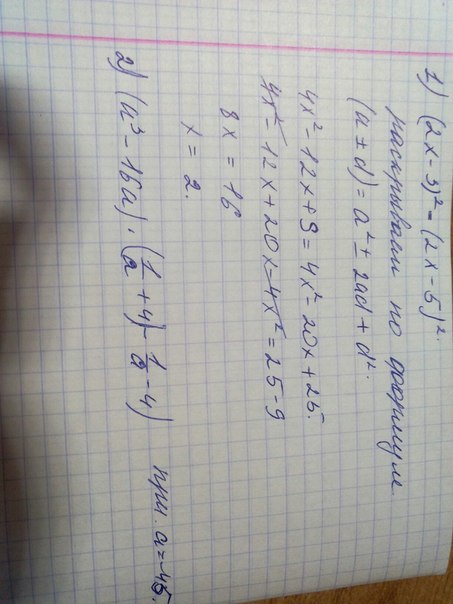 1) (2x-3)² = (2x-5)².
раскрываем по формуле.
(a±d) = a² ± 2ad + d².
4x² - 12x + 9 = 4x² - 20x + 25.
4x² - 12x + 20x - 4x² = 25 - 9
8x = 16
x = 2.
2) (a³ - 16a) · (1/a + 4) - 1/a - 4) при. a = -45.